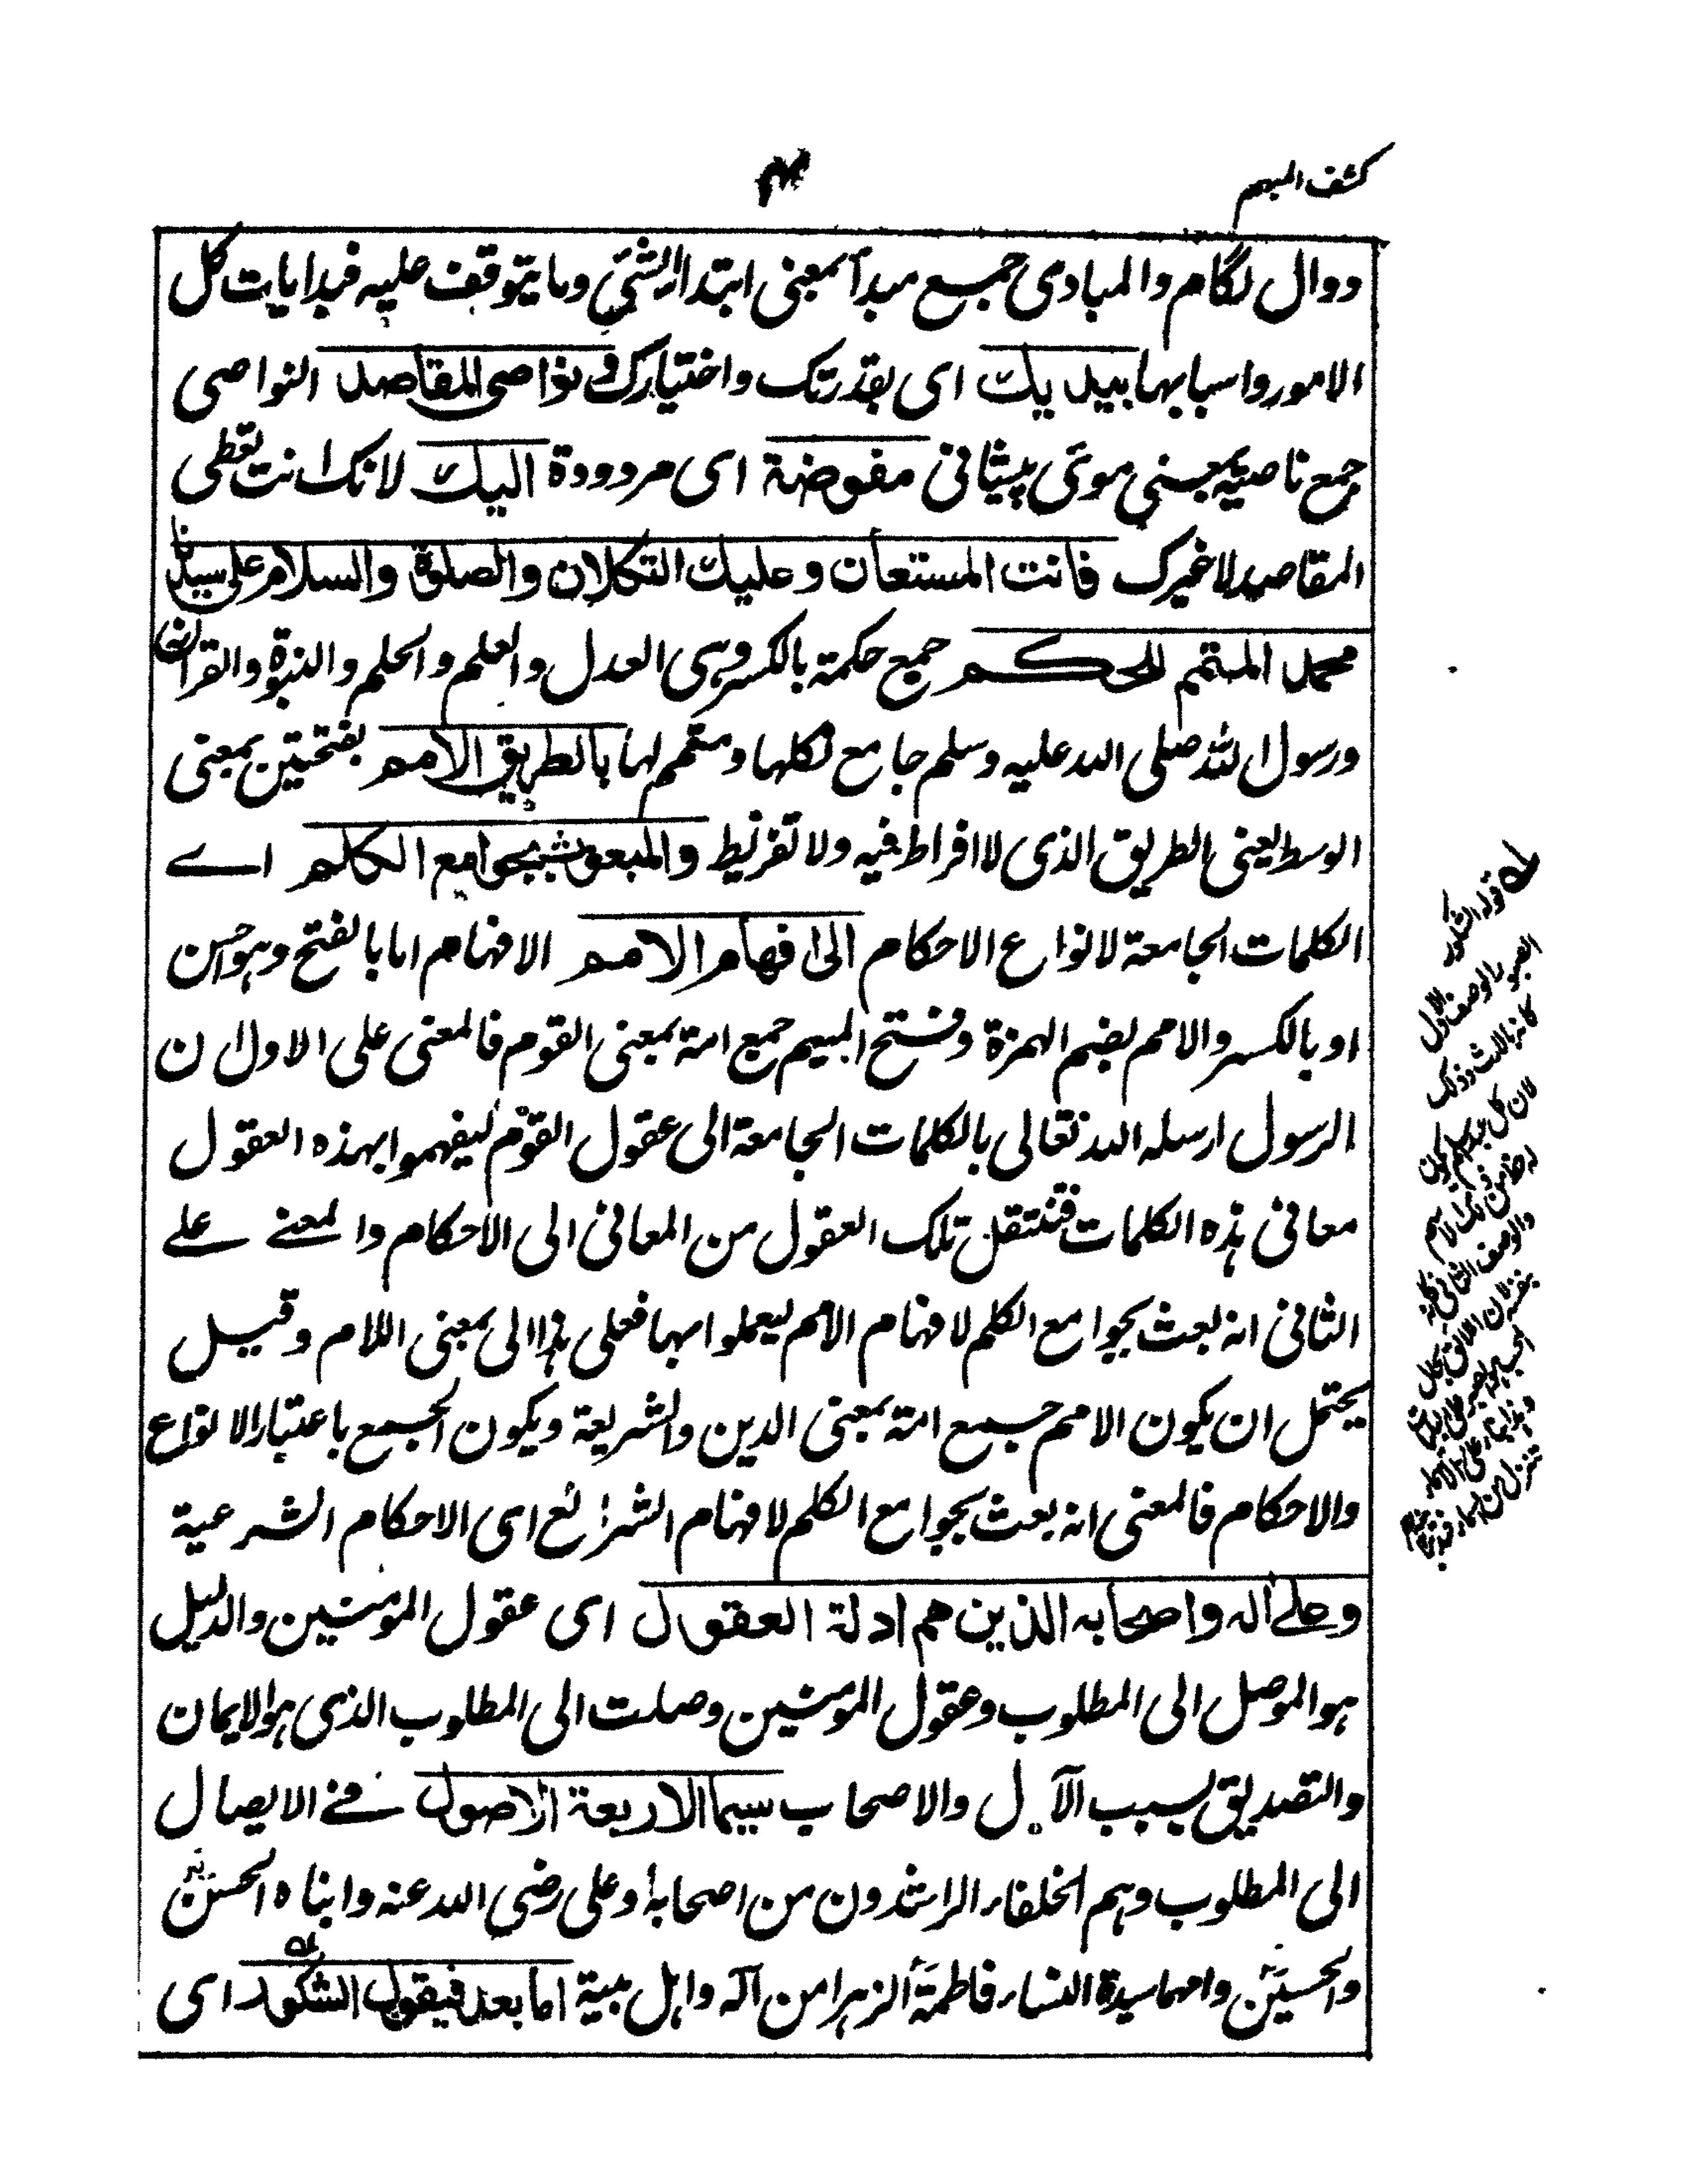 كشف المبهم
ودوال لگام والمبادى جمع مبدأ بمعنى ابتداء الشئ وما يتوقف عليه فبدايات كل
الامور واسبابها بيديك اى بقدرتك واختيارك ونواصى المقاصد النواصى
جمع ناصية بمعنى موئى پيشانى مفوضة اى مردودة اليك لانك انت تعطى
المقاصد لا غيرك فانت المستعان وعليك التكلان والصلوة والسلام على سيدنا
محمد المتمم للحكم جمع حكمة بالكسر وهى العدل والعلم والحلم والنبوة والقرآن
ورسول الله صلى الله عليه وسلم جامع لكلها ومتمم لها بالطريق الامم بفتحتين بمعنى
الوسط يعنى الطريق الذى لا افراط فيه ولا تفريط والمبعوث بجوامع الكلم اے
الكلمات الجامعة لانواع الاحكام الى افهام الامم الافهام اما بالفتح وهو احسن
او بالكسر والامم بضم الهمزة وفتح الميم جمع امة بمعنى القوم فالمعنى على الاول ان
الرسول ارسله الله تعالى بالكلمات الجامعة الى عقول القوم ليفهموا بهذه العقول
معانى هذه الكلمات فتنتقل تلك العقول من المعانى الى الاحكام والمعنے علے
الثانى انه بعث بجوامع الكلم لافهام الامم ليعملوا بها فعلى هذا الى بمعنى اللام وقيل
يحتمل ان يكون الامم جمع امة بمعنى الدين والشريعة ويكون الجمع باعتبار الانواع
والاحكام فالمعنى انه بعث بجوامع الكلم لافهام الشرائع اى الاحكام الشرعية
وعلے آله واصحابه الذين هم ادلة العقول اى عقول المؤمنين والدليل
هو الموصل الى المطلوب وعقول المؤمنين وصلت الى المطلوب الذى هو الايمان
والتصديق بسبب الآل والاصحاب سيما الاربعة الاصول فے الايصال
الى المطلوب وهم الخلفاء الراشدون من اصحابه وعلى رضى الله عنه وابناه الحسن
والحسين وامهما سيدة النساء فاطمة الزهرا من آله واهل بيته اما بعد فيقول الشكور اى
قوله الشكور
الصبور الوصف الاول
لان كل
والوصف الثانى